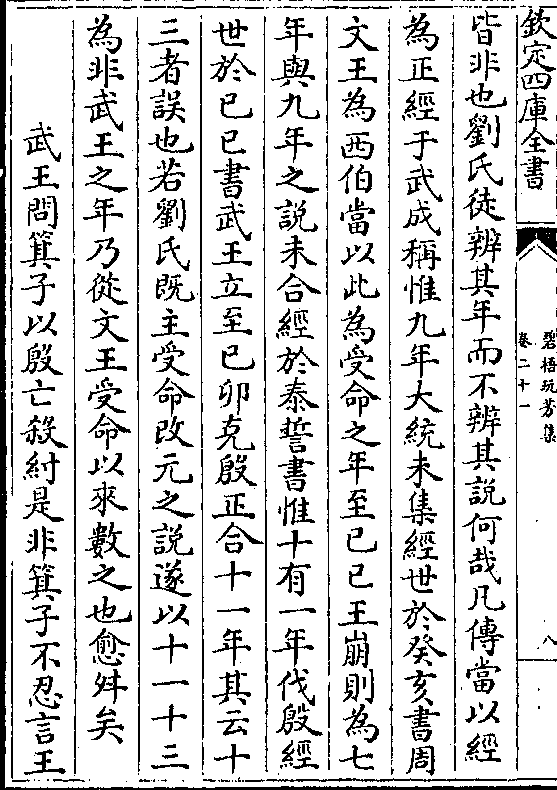 欽定四庫全書
碧梧玩芳集
卷二十一
八
皆非也劉氏徒辨其年而不辨其說何哉凡傳當以經
為正經于武成稱惟九年大統未集經世於癸亥書周
文王為西伯當以此為受命之年至己巳王崩則為七
年與九年之說未合經於泰誓書惟十有一年伐殷經
世於己巳書武王立至己卯克殷正合十一年其云十
三者誤也若劉氏既主受命改元之說遂以十一十三
為非武王之年乃從文王受命以來數之也愈舛矣
武王問箕子以殷亡殺紂是非箕子不忍言王